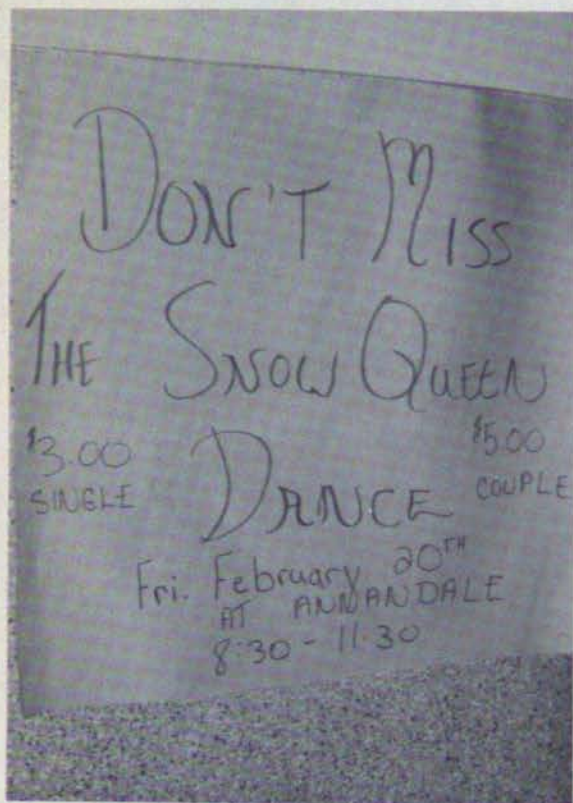 DON'T MISS
THE SNOW QUEEN
$3.00
SINGLE
DANCE
$5.00
COUPLE
Fri. February 20TH
AT ANNANDALE
8:30 - 11:30